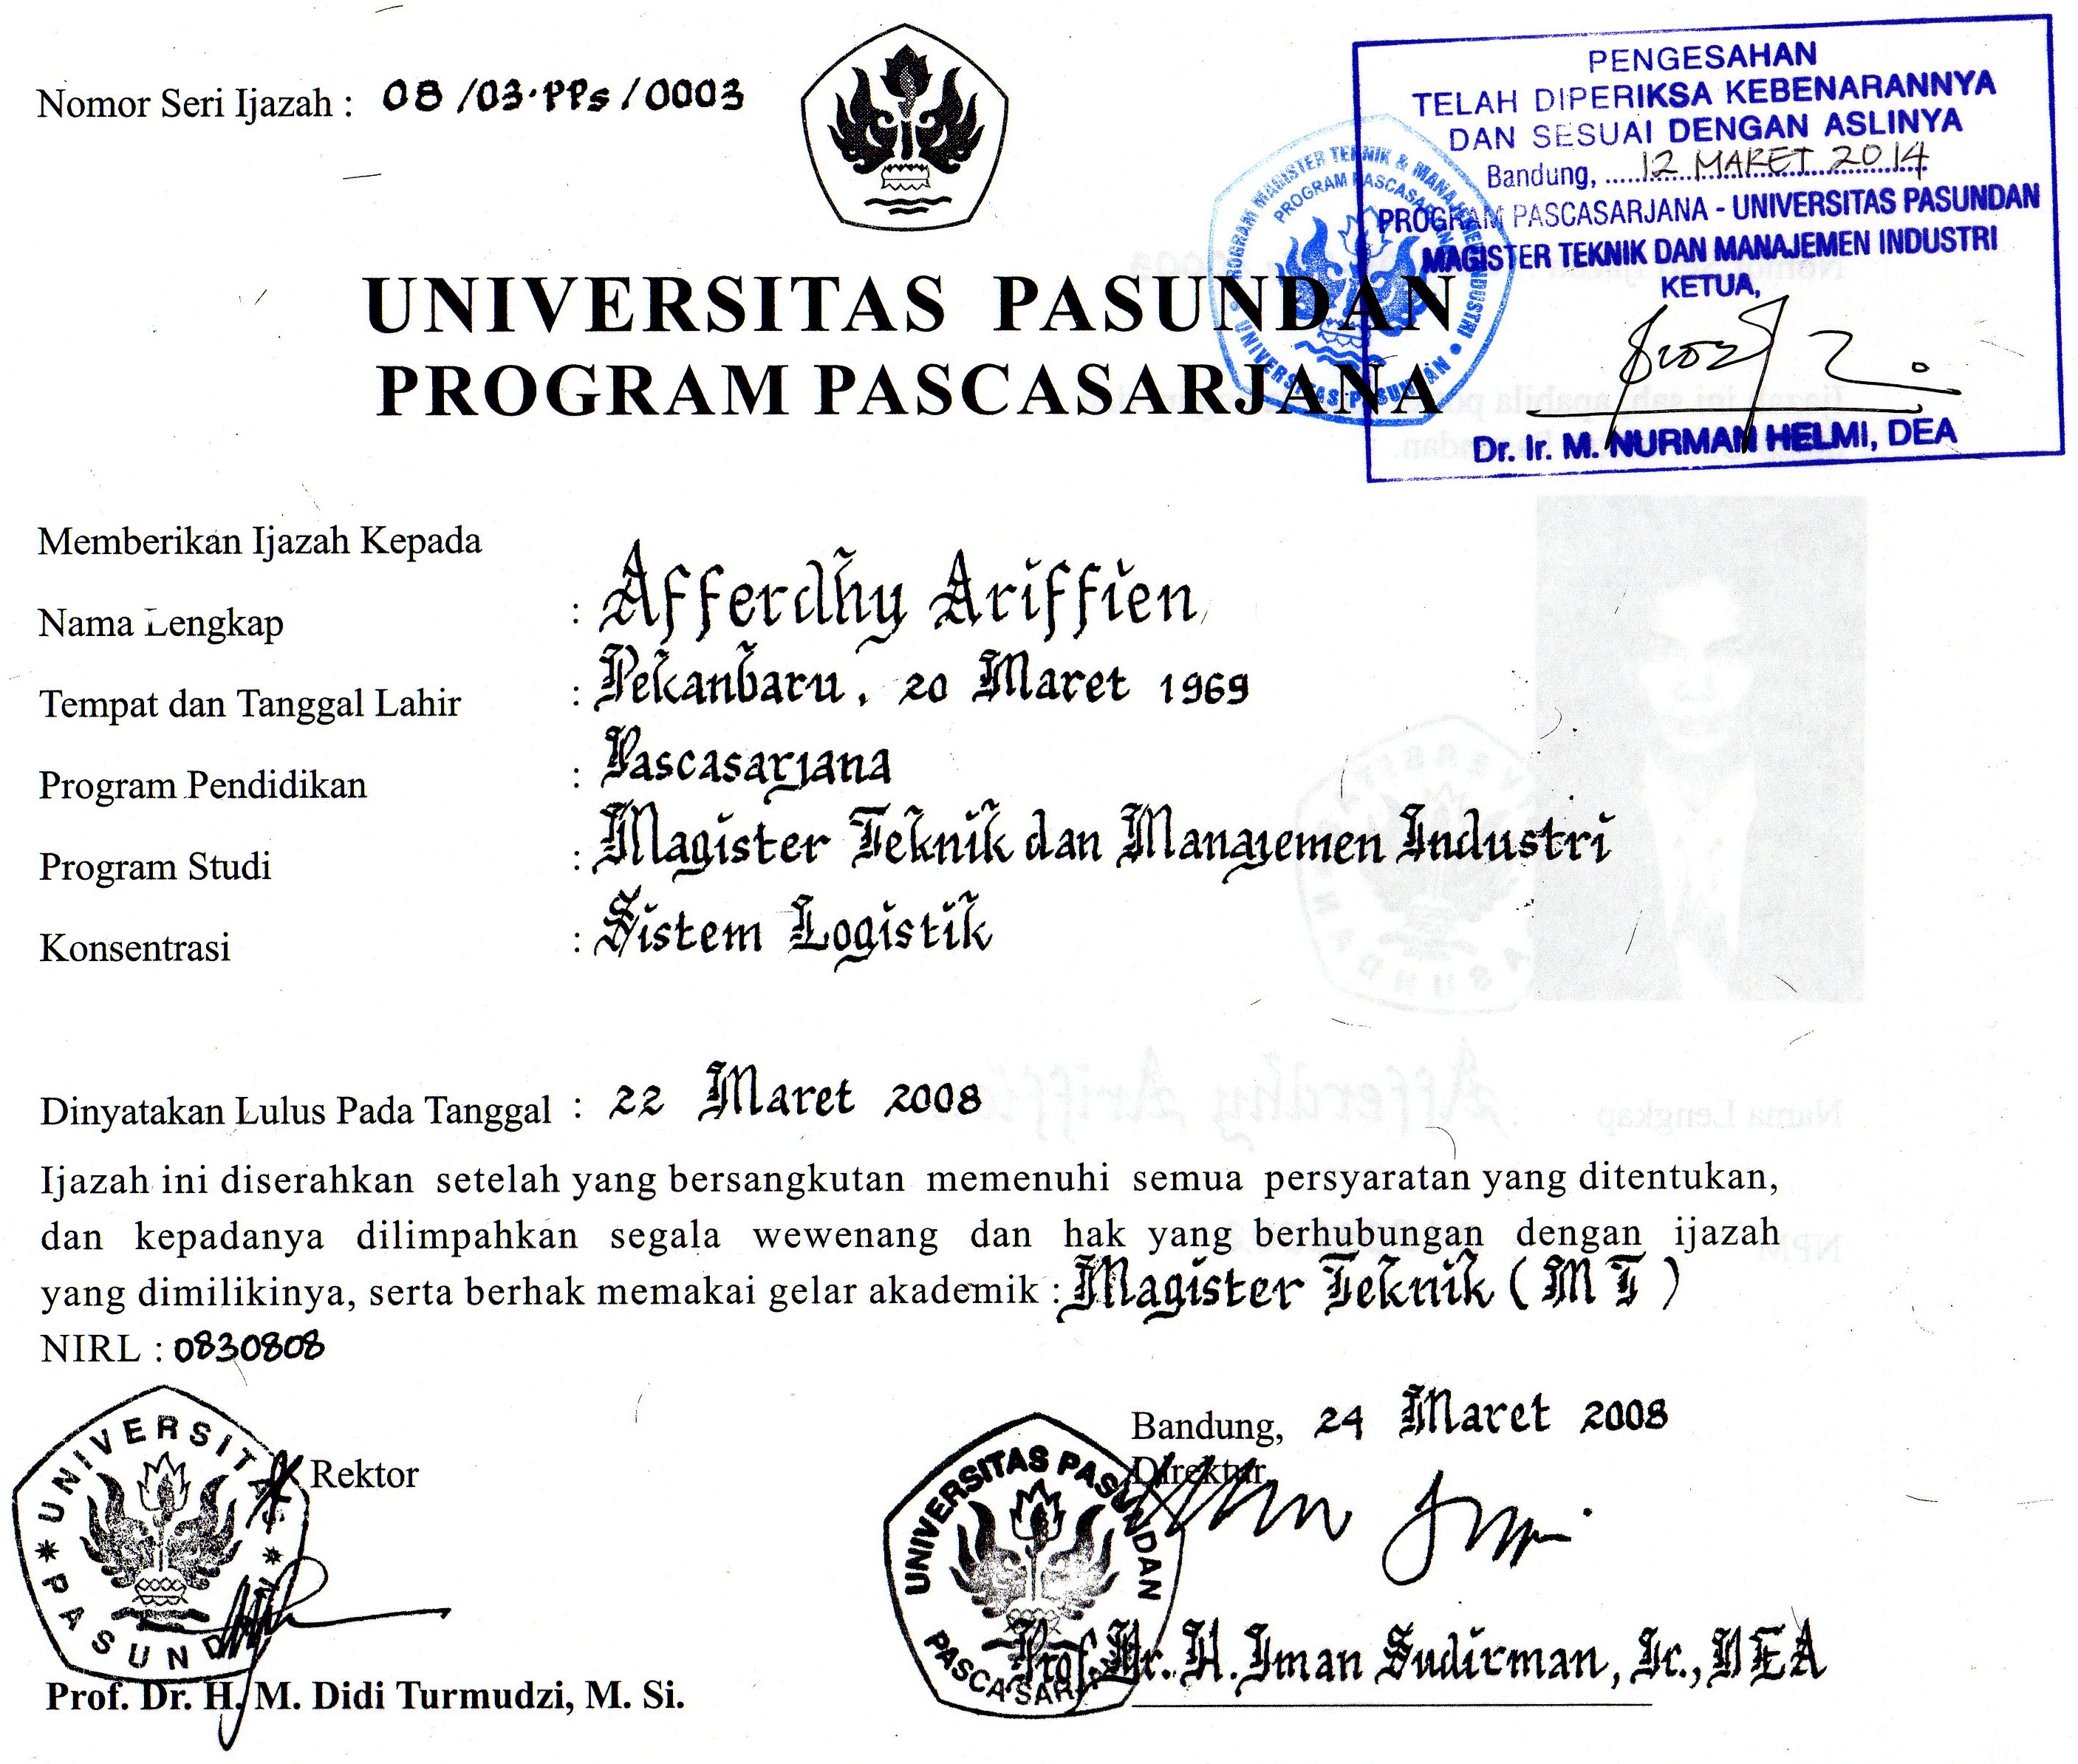 Nomor Seri Ijazah : 08/03.PPs/0003
PENGESAHAN
TELAH DIPERIKSA KEBENARANNYA
DAN SESUAI DENGAN ASLINYA
Bandung, ..... 12 MARET 2014
PROGRAM PASCASARJANA - UNIVERSITAS PASUNDAN
MAGISTER TEKNIK DAN MANAJEMEN INDUSTRI
KETUA,
Dr. Ir. M. NURMAN HELMI, DEA
PROGRAM MAGISTER TEKNIK & MANAJEMEN INDUSTRI
PROGRAM PASCASARJANA
UNIVERSITAS PASUNDAN
UNIVERSITAS PASUNDAN
PROGRAM PASCASARJANA
Memberikan Ijazah Kepada
Nama Lengkap : Afferdhy Ariffien
Tempat dan Tanggal Lahir : Pekanbaru, 20 Maret 1969
Program Pendidikan : Pascasarjana
Program Studi : Magister Teknik dan Manajemen Industri
Konsentrasi : Sistem Logistik
Dinyatakan Lulus Pada Tanggal : 22 Maret 2008
Ijazah ini diserahkan setelah yang bersangkutan memenuhi semua persyaratan yang ditentukan,
dan kepadanya dilimpahkan segala wewenang dan hak yang berhubungan dengan ijazah
yang dimilikinya, serta berhak memakai gelar akademik : Magister Teknik ( MT )
NIRL : 0830808
Bandung, 24 Maret 2008
Rektor
Direktur,
UNIVERSITAS PASUNDAN
UNIVERSITAS PASUNDAN
PASCASARJANA
Prof. Dr. H. M. Didi Turmudzi, M. Si.
Prof. Dr. H. Iman Sudirman, Ir., DEA